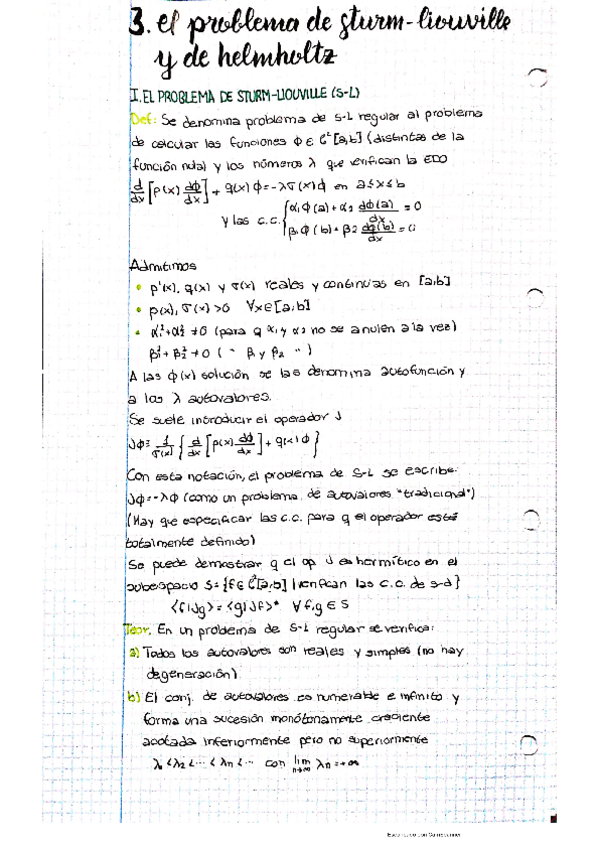 3. el problema de sturm-liouville
y de helmholtz
I. EL PROBLEMA DE STURM-LIOUVILLE (S-L)
Def: Se denomina problema de S-L regular al problema
de calcular las funciones ϕ ∈ C²[a,b] (distintas de la
función nula) y los números λ que verifican la EDO
d/dx [p(x) dϕ/dx] + q(x) ϕ = -λσ(x)ϕ en a≤x≤b
y las c.c. { α₁ϕ(a) + α₂ dϕ(a)/dx = 0
β₁ϕ(b) + β₂ dϕ(b)/dx = 0
Admitimos
• p'(x), q(x) y σ(x) reales y continuas en [a,b]
• p(x), σ(x) >0 ∀x∈[a,b]
• α₁²+α₂² ≠ 0 (para q α₁ y α₂ no se anulen a la vez)
β₁²+β₂² ≠ 0 ( " β₁ y β₂ " )
A las ϕ(x) solución se las denomina autofunción y
a los λ autovalores.
Se suele introducir el operador J
Jϕ ≡ 1/σ(x) { d/dx [p(x) dϕ/dx] + q(x) ϕ }
Con esta notación, el problema de S-L se escribe:
Jϕ = -λϕ (como un problema de autovalores "tradicional")
(Hay que especificar las c.c. para q el operador esté
totalmente definido)
Se puede demostrar q el op J es hermítico en el
subespacio S = {f ∈ C²[a,b] | verifican las c.c. de s-l}
⟨f|Jg⟩ = ⟨g|Jf⟩* ∀ f,g ∈ S
Teor. En un problema de S-L regular se verifica:
a) Todos los autovalores son reales y simples (no hay
degeneración)
b) El conj. de autovalores es numerable e infinito y
forma una sucesión monótonamente creciente
acotada inferiormente pero no superiormente
λ₁ < λ₂ < ... < λn < ... con lim n→∞ λn = +∞
Escaneado con CamScanner